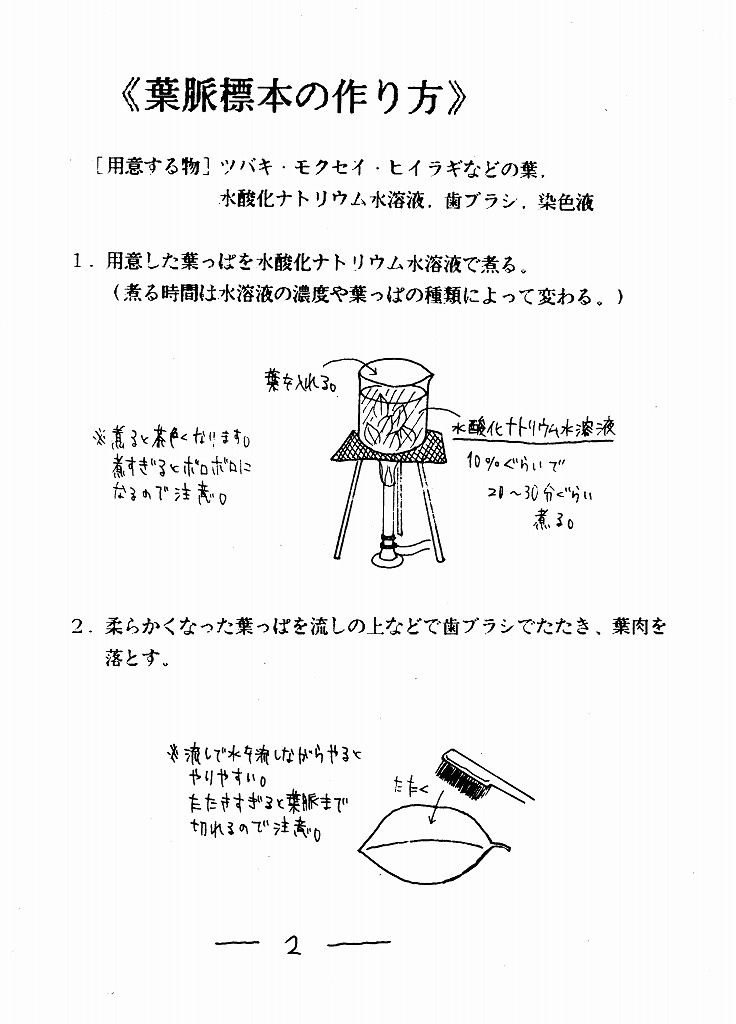 《葉脈標本の作り方》
［用意する物］ツバキ・モクセイ・ヒイラギなどの葉，
水酸化ナトリウム水溶液，歯ブラシ，染色液
１．用意した葉っぱを水酸化ナトリウム水溶液で煮る。
（煮る時間は水溶液の濃度や葉っぱの種類によって変わる。）
葉を入れる。
※煮ると茶色くなります。
煮すぎるとボロボロに
なるので注意。
水酸化ナトリウム水溶液
10%ぐらいで
20～30分ぐらい
煮る。
２．柔らかくなった葉っぱを流しの上などで歯ブラシでたたき、葉肉を
落とす。
※流しで水を流しながらやると
やりやすい。
たたきすぎると葉脈まで
切れるので注意。
たたく
― 2 ―